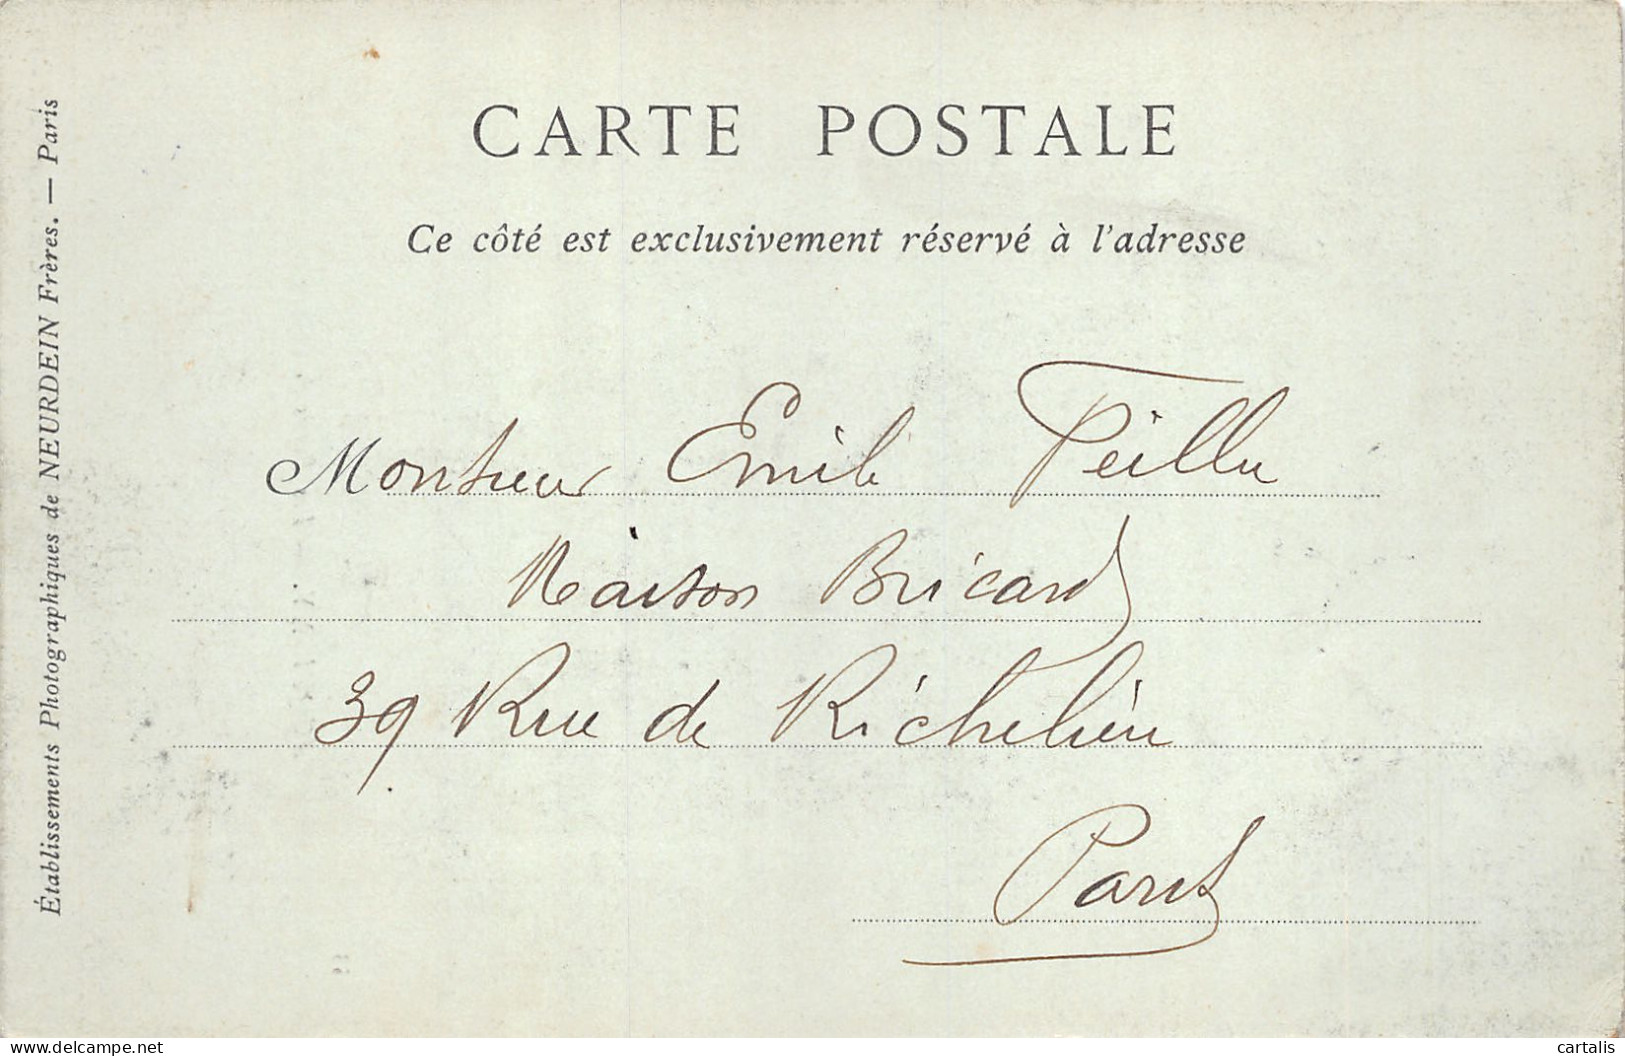 CARTE POSTALE
Ce côté est exclusivement réservé à l'adresse
Monsieur Emile
Maison Bricard
39 Rue de Richelieu
Paris
Établissements Photographiques de NEURDEIN Frères. — Paris
delcampe.net
cartalis